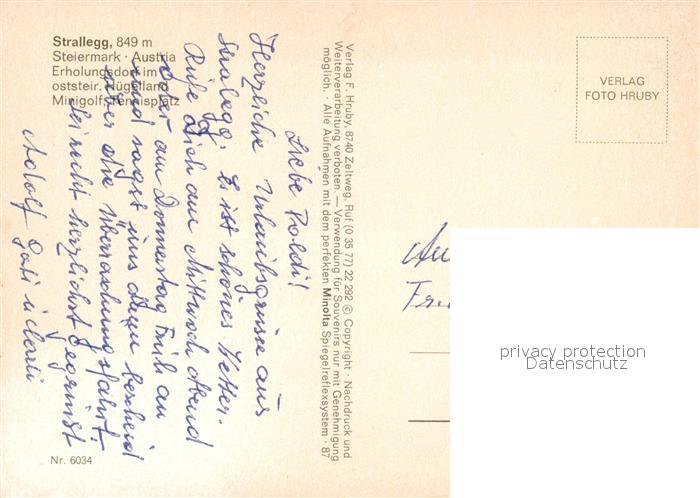 Strallegg, 849 m
Steiermark · Austria
Erholungsdorf im
oststeir. Hügelland
Minigolf, Tennisplatz
Liebe Poldi!
Herzliche Urlaubsgrüsse aus
Strallegg. Es ist schönes Wetter.
Rufe Dich am Mittwoch Abend
oder am Donnerstag Früh an
und sagst uns dann bescheid
über die Überraschungsfahrt.
Sei recht herzlichst gegrüsst
Adolf
Nr. 6034
Verlag F. Hruby, 8740 Zeltweg, Ruf (0 35 77) 22 292 © Copyright · Nachdruck und
Weiterverarbeitung verboten. — Verwendung für Souvenirs nur mit Genehmigung
möglich. · Alle Aufnahmen mit dem perfekten Minolta Spiegelreflexsystem · 87
VERLAG
FOTO HRUBY
An
Fr.
privacy protection
Datenschutz